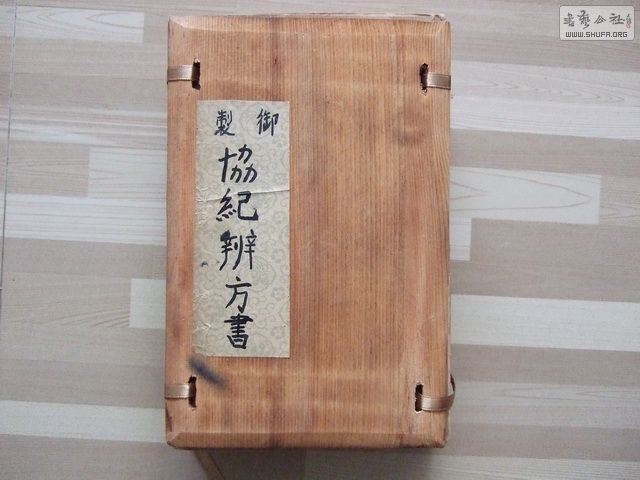 御製
協紀辨方書
书艺公社
WWW.SHUFA.ORG